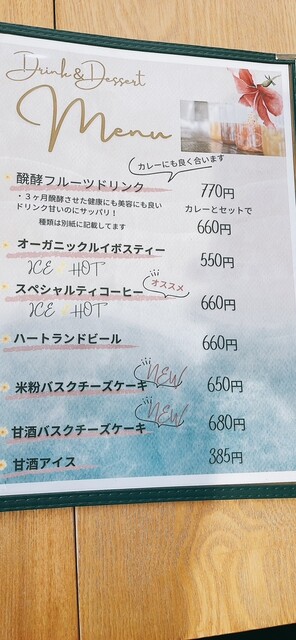 Drink & Dessert
Menu
カレーにも良く合います
醗酵フルーツドリンク 770円
・3ヶ月醗酵させた健康にも美容にも良い カレーとセットで
ドリンク甘いのにサッパリ！ 660円
種類は別紙に記載してます
オーガニックルイボスティー 550円
ICE HOT
オススメ
スペシャルティコーヒー 660円
ICE HOT
ハートランドビール 660円
NEW
米粉バスクチーズケーキ 650円
NEW
甘酒バスクチーズケーキ 680円
甘酒アイス 385円